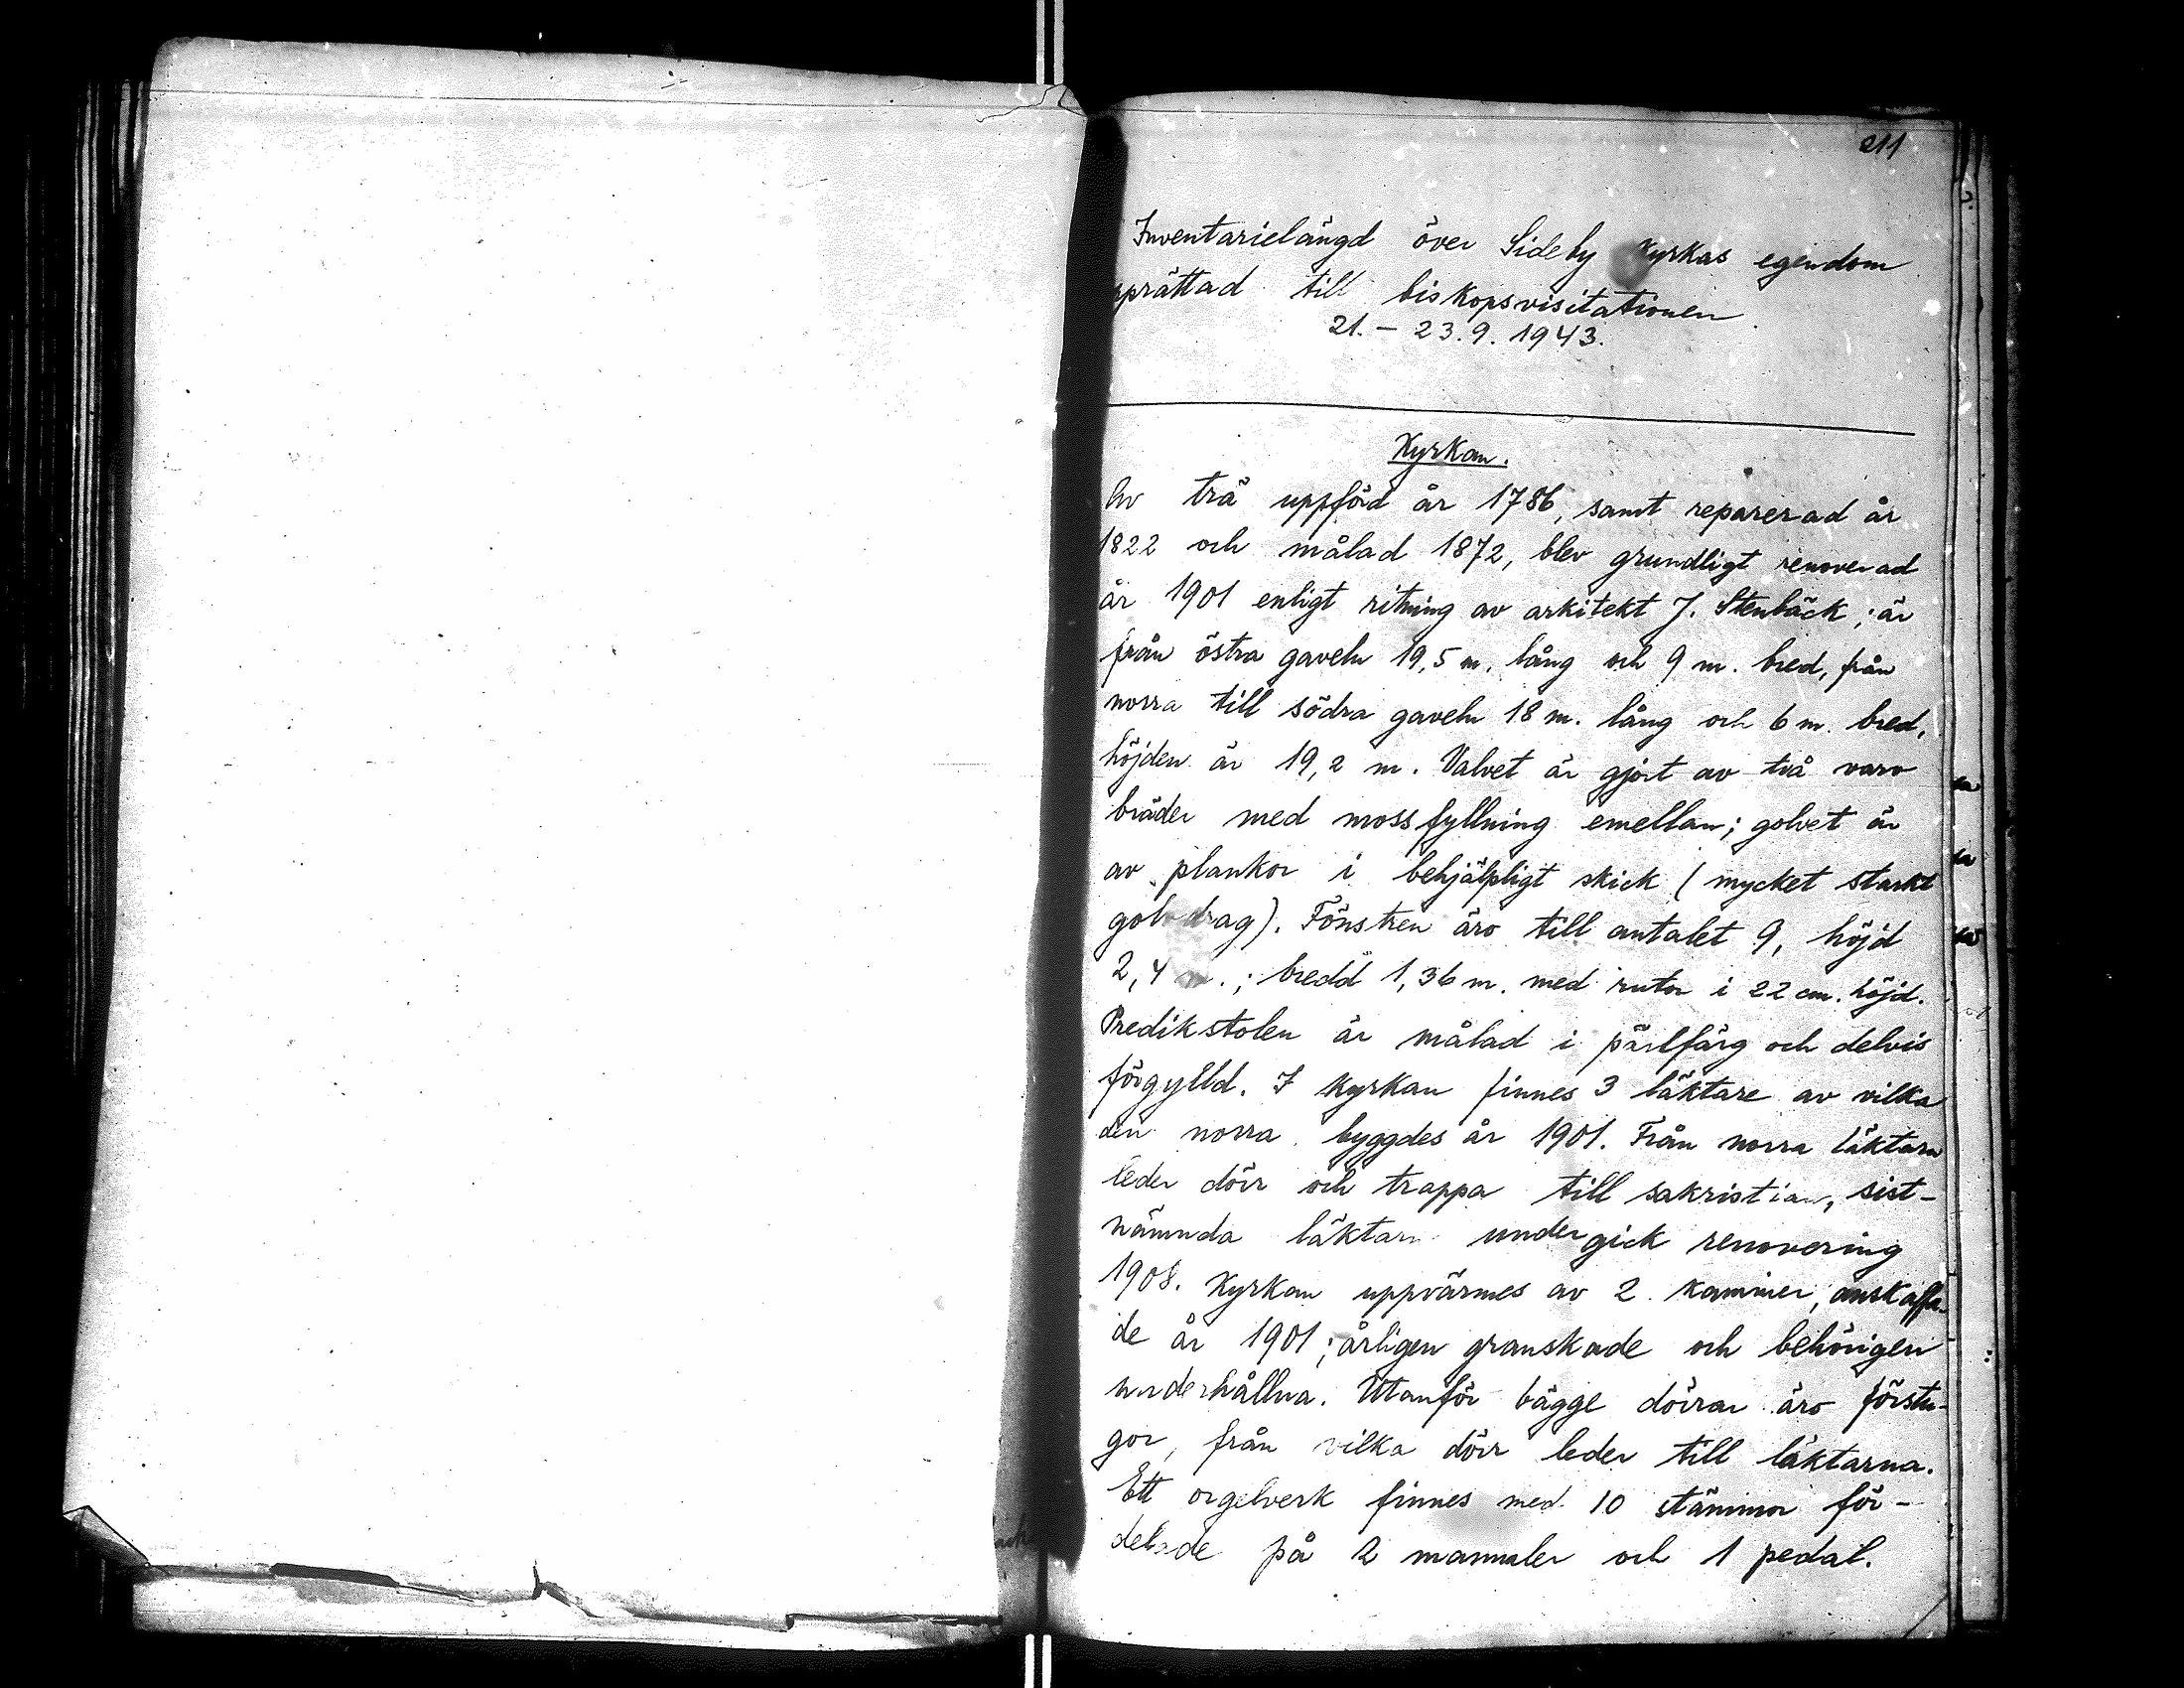 211
Inventarielängd över Sideby Kyrkas egendom
pprättad till biskopsvisitationen
21. – 23.9. 1943.
Kyrkan.
Av trä uppförd år 1786, samt reparerad år
1822 och målad 1872, blev grundligt renoverad
år 1901 enligt ritning av arkitekt J. Stenbäck; är
från östra gaveln 19,5 m. lång och 9 m. bred, från
norra till södra gaveln 18 m. lång och 6 m. bred,
höjden är 19,2 m. Valvet är gjort av två varv
bräder med mossfyllning emellan; golvet är
av plankor i behjälpligt skick (mycket starkt
golvdrag). Fönstren äro till antalet 9, höjd
2,4 m.; bredd 1,36 m. med rutor i 22 cm. höjd.
Predikstolen är målad i pärlfärg och delvis
förgylld. I Kyrkan finnes 3 läktare av vilka
den norra byggdes år 1901. Från norra läktarn
leder dörr och trappa till sakristian, sist-
nämnda läktarn undergick renovering
1908. Kyrkan uppvärmes av 2 kaminer, anskaffa-
de år 1901; årligen granskade och behörigen
underhållna. Utanför bägge dörrar äro förstu-
gor, från vilka dörr leder till läktarna.
Ett orgelverk finnes med 10 stämmor för-
delade på 2 manualer och 1 pedal.